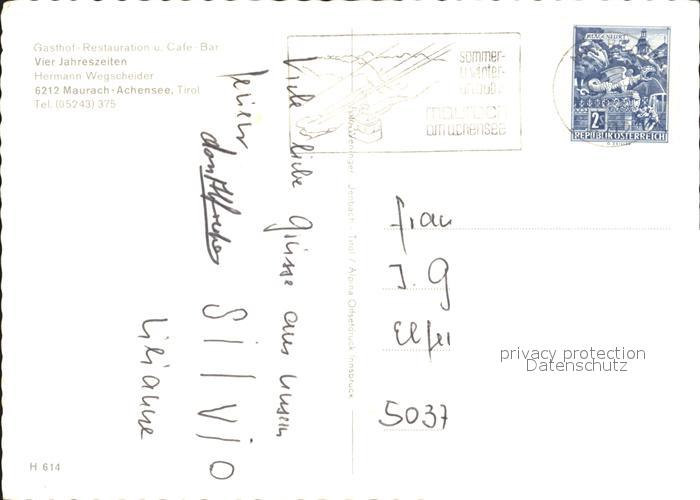 Gasthof-Restauration u. Cafe-Bar
Vier Jahreszeiten
Hermann Wegscheider
6212 Maurach-Achensee, Tirol
Tel. (05243) 375
sommer-
u. winter-
urlaub.
maurach
am achensee
KLAGENFURT
2 S
REPUBLIK ÖSTERREICH
Viele liebe Grüsse aus unsern
Ferien
SILVIO
Lilianne
Jenbach - Tirol / Alpina Offsetdruck Innsbruck
Frau
J. G
5037
privacy protection
Datenschutz
H 614